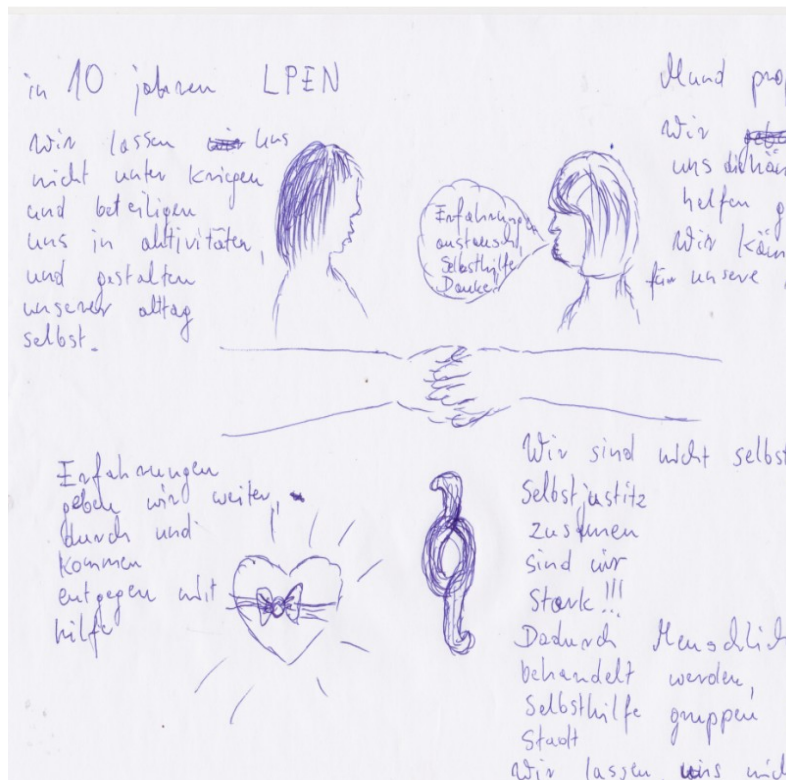 in 10 jahren LPEN
Wir lassen uns
nicht unter kriegen
und beteiligen
uns in aktivitäten,
und gestalten
unserer alltag
selbst.
Mund
Wir
uns
helfen
Wir
für unsere
Erfahrungen
austausch,
Selbsthilfe
Danke
Erfahrungen
geben wir weiter,
durch und
kommen
entgegen mit
hilfe
Wir sind nicht selbst
Selbstjustitz
zusamen
sind wir
Stark!!!
Dadurch Menschlich
behandelt werden,
Selbsthilfe gruppen
Stadt
Wir lassen uns